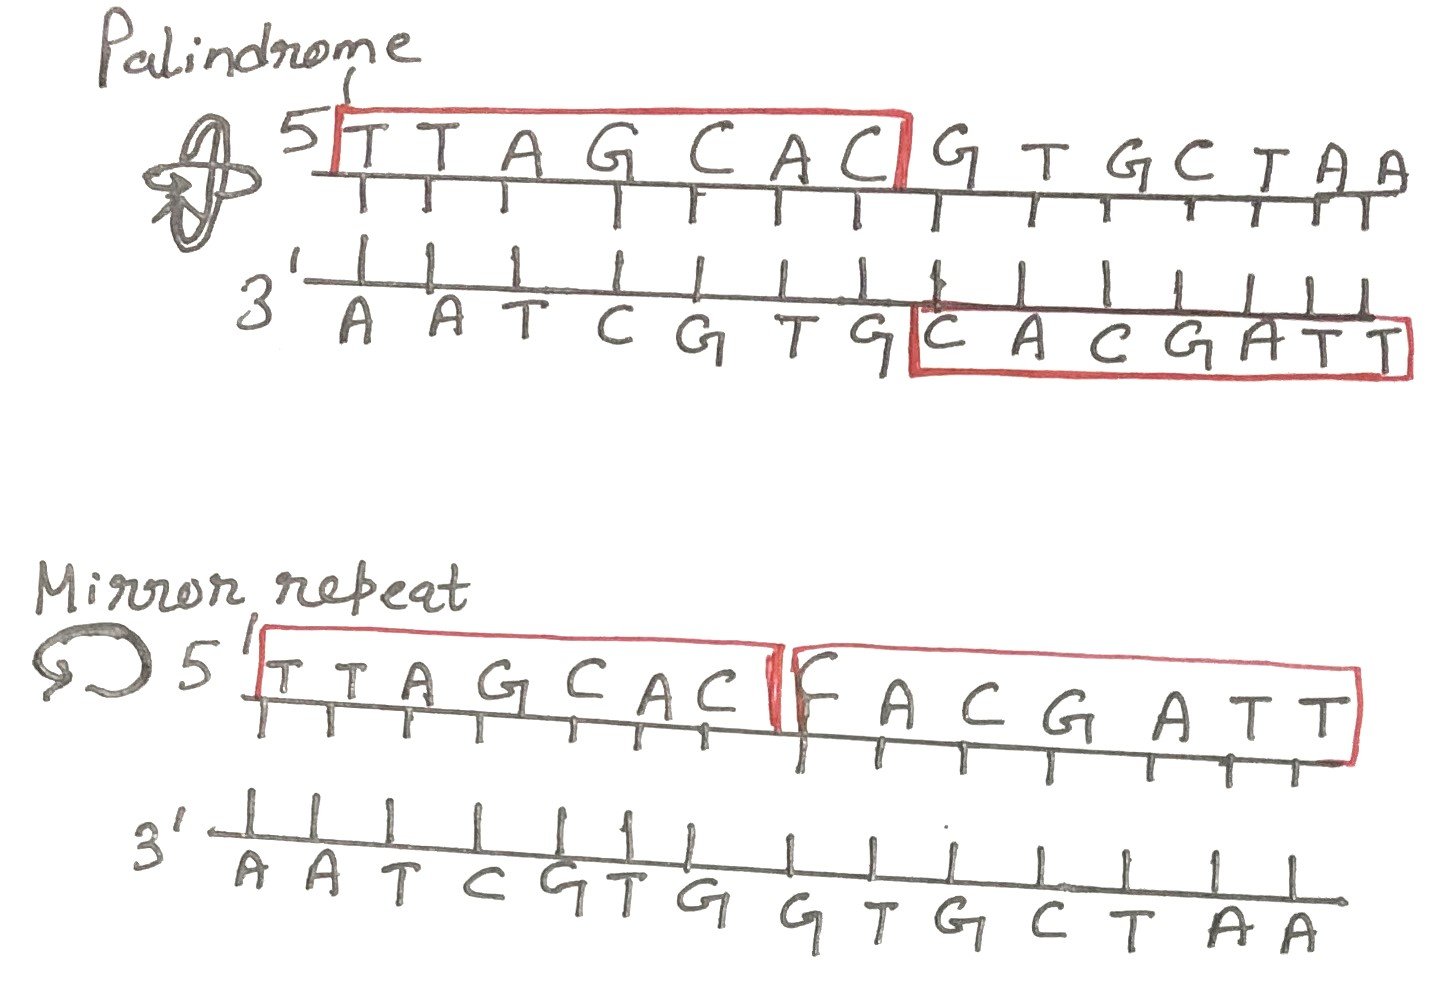 Palindrome
5' T T A G C A C G T G C T A A
3' A A T C G T G C A C G A T T
Mirror repeat
5' T T A G C A C C A C G A T T
3' A A T C G T G G T G C T A A